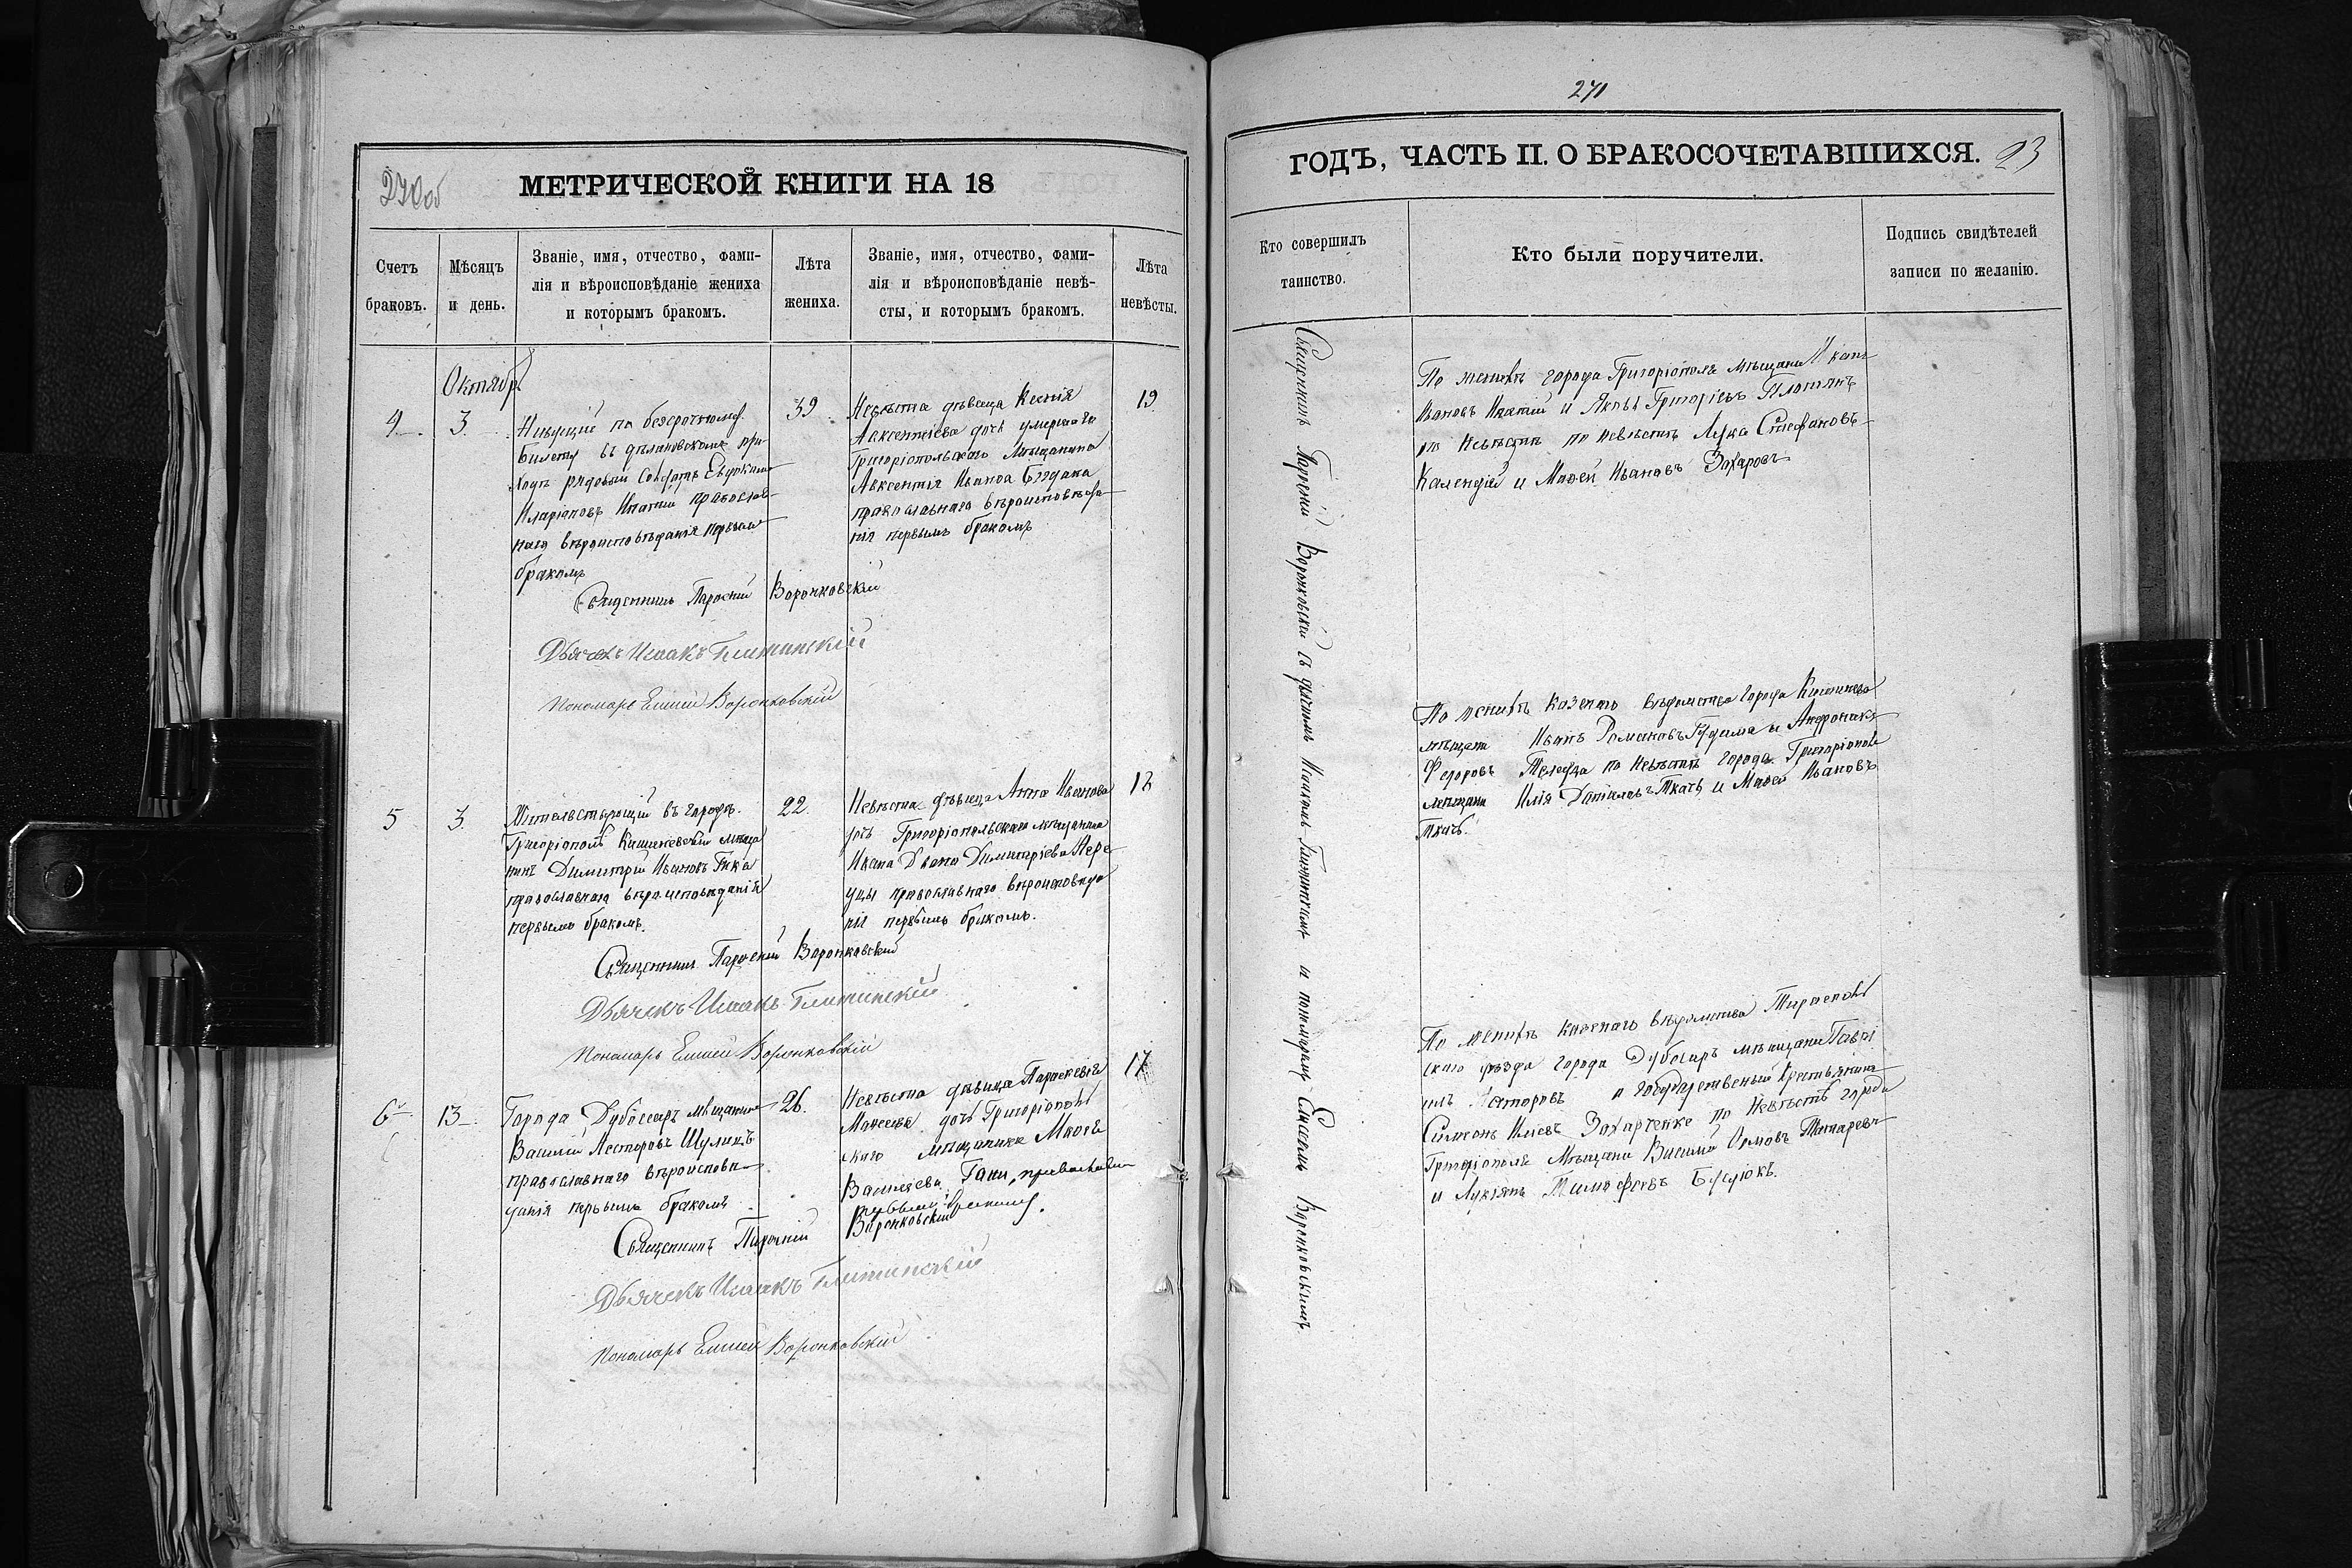 270об
МЕТРИЧЕСКОЙ КНИГИ НА 18
Счетъ браковъ.
Мѣсяцъ и день.
Званіе, имя, отчество, фами-
лія и вѣроисповѣданіе жениха
и которымъ бракомъ.
Лѣта жениха.
Званіе, имя, отчество, фами-
лія и вѣроисповѣданіе невѣ-
сты, и которымъ бракомъ.
Лѣта невѣсты.
Октябр.
4
3.
Живущій по безсрочному
билету въ
ходѣ рядовый
Иларіоновъ Игнатій православ-
наго вѣроисповѣданія первымъ
бракомъ
39
Невѣста дѣвица Ксенія
Авксентіева дочь умершаго
Григоріопольскаго Мѣщанина
Авксентія Иванова
православнаго вѣроисповѣда-
нія первымъ бракомъ
19
Священникъ Парѳеній Воронковскій
Дьячекъ Исаакъ
Пономарь Елисей Воронковскій
5
3.
Жительствующій въ городѣ
Григоріополѣ Кишиневскій мѣща
нинъ Димитрій Ивановъ Гика
православнаго вѣроисповѣданія
первымъ бракомъ.
22.
Невѣста дѣвица Анна Иванова
дочь Григоріопольскаго мѣщанина
Ивана Димитріева
православнаго вѣроисповѣда
нія первымъ бракомъ.
18
Священникъ Парѳеній Воронковскій
Дьячекъ Исаакъ
Пономарь Елисей Воронковскій
6
13
Города Дубоссаръ мѣщанинъ
Василій Несторовъ Шуликъ
православнаго вѣроисповѣ
данія первымъ бракомъ
26.
Невѣста дѣвица Параскевія
Моисеева дочь Григоріополь
скаго мѣщанина Моисея
Василіева православн
первымъ бракомъ.
17
Священникъ Парѳеній Воронковскій
Дьячекъ Исаакъ
Пономарь Елисей Воронковскій
271
ГОДЪ, ЧАСТЬ II. О БРАКОСОЧЕТАВШИХСЯ.
23
Кто совершилъ таинство.
Кто были поручители.
Подпись свидѣтелей
записи по желанію.
Священникъ Парѳеній Воронковскій съ дьячкомъ Исаакомъ и пономаремъ Елисеемъ Воронковскимъ.
По женихѣ города Григоріополя мѣщане
Ивановъ Игнатій и Яковъ Григорьевъ
по невѣстѣ по невѣстѣ Лука Стефановъ
и Моѳей Ивановъ Захаровъ
По женихѣ казеннаго вѣдомства города Кишинева
мѣщане Иванъ Романовъ Гудима и Андроникъ
Федоровъ по невѣстѣ города Григоріополя
мѣщане Илія Даниловъ Ткачъ и Моѳей Ивановъ
Ткачъ.
По женихѣ казеннаго вѣдомства Тирасполь
скаго уѣзда города Дубосаръ мѣщане Гаврі
илъ Несторовъ и Государственный крестьянинъ
Симеонъ Захарченко по невѣстѣ города
Григоріополя Мѣщане Василій
и Лукіянъ Тимофѣевъ